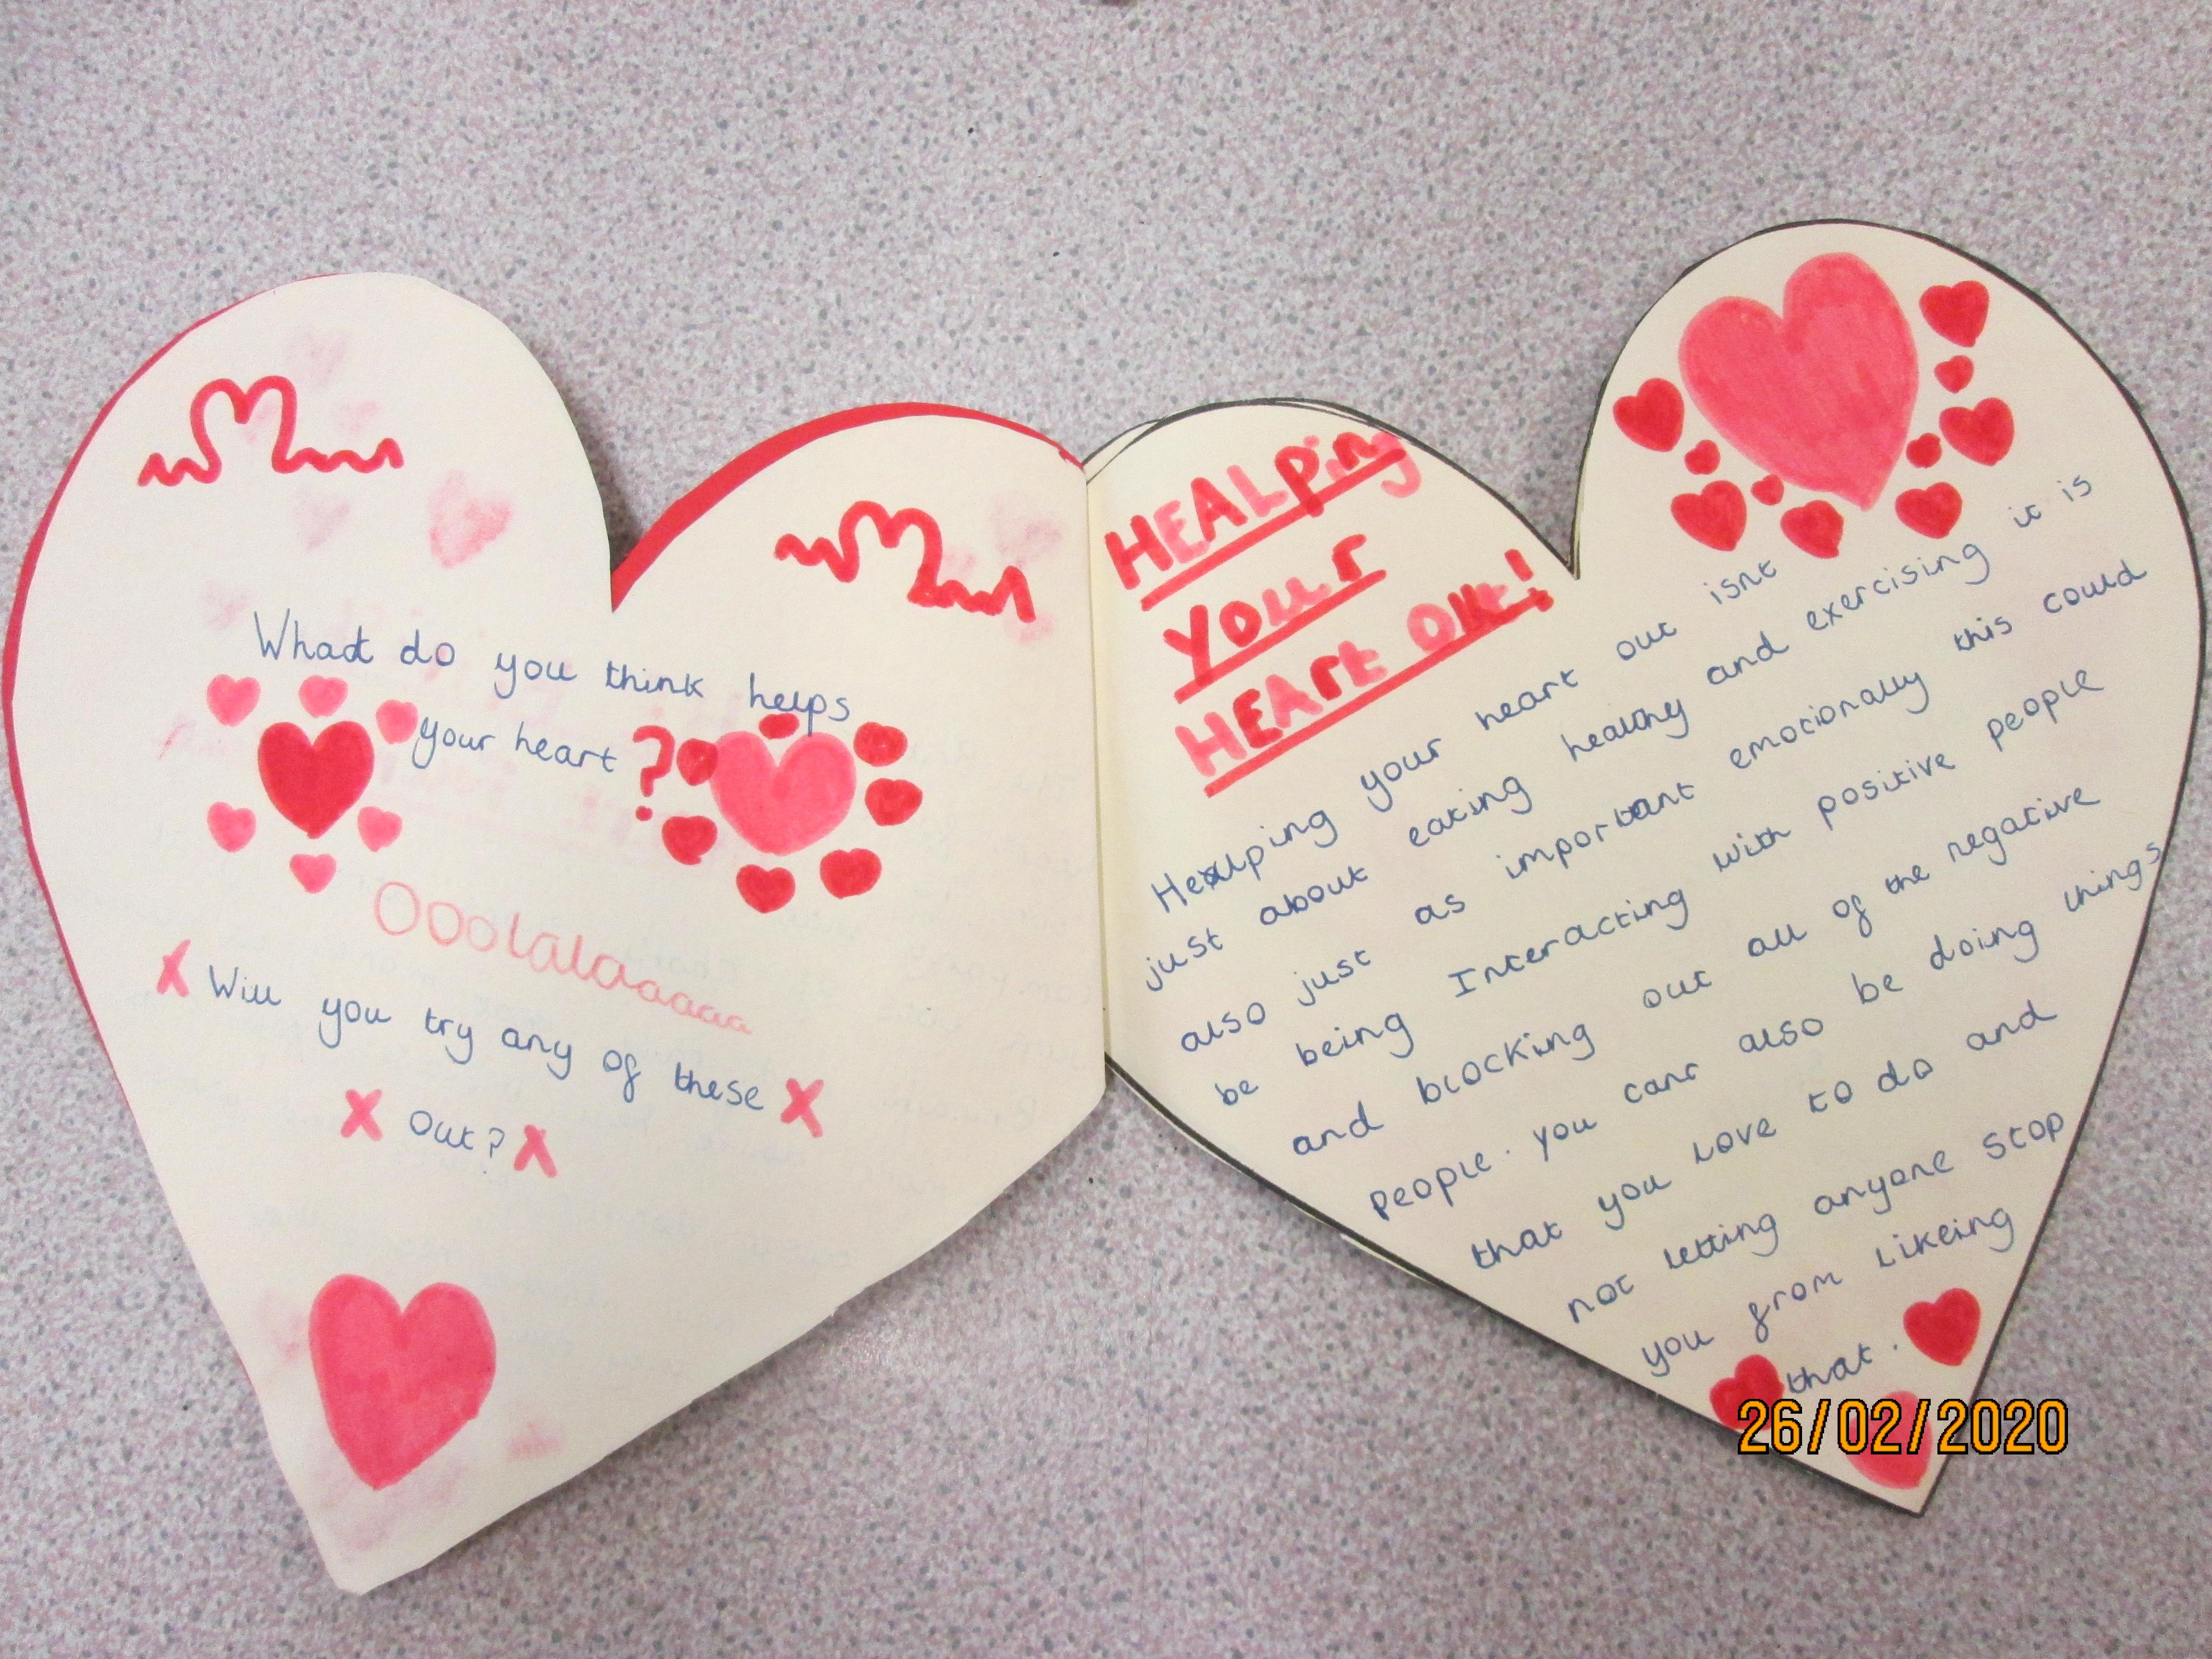 What do you think helps
your heart?
Ooolalaaaaaa
Will you try any of these
Out?
HEALping
Your
HEArt Out!
Healping your heart out isnt
just about eating healthy and exercising it is
also just as important emotionally this could
be being Interacting with positive people
and blocking out all of the negative
people. you can also be doing things
that you love to do and
not letting anyone stop
you from likeing
that.
26/02/2020